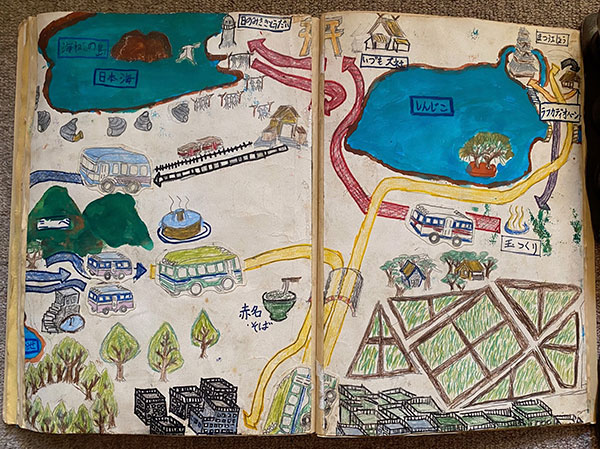 日本海
日のみさきとうだい
いづも大社
まつ江じょう
しんじこ
ラフカディオハーン
玉つくり
赤名
そば